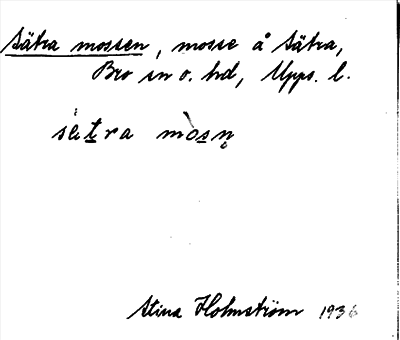 Sätra mossen, mosse å Sätra,
Bro sn o. hd, Upps. l.
sètra mòsn̥
Stina Holmström 1936